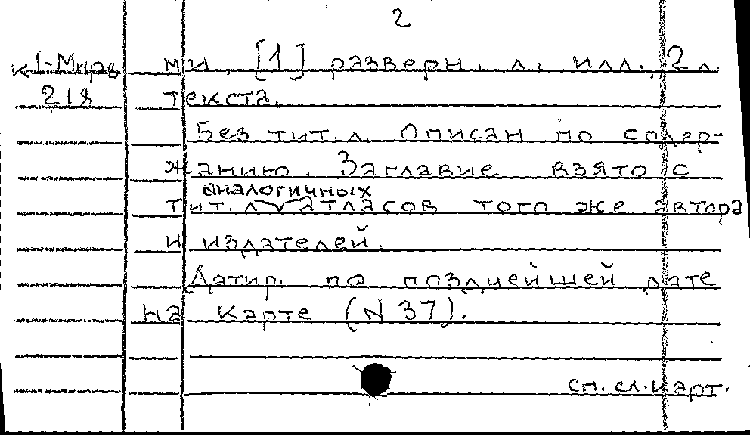 2
к1-Мира ми, [1] разверн. л. илл., 2 л.
218 текста.
Без тит. л. Описан по содер-
жанию. Заглавие взято с
аналогичных
тит. л. атласов того же автора
и издателей.
Датир. по позднейшей дате
на карте (N 37).
сп. сл. карт.